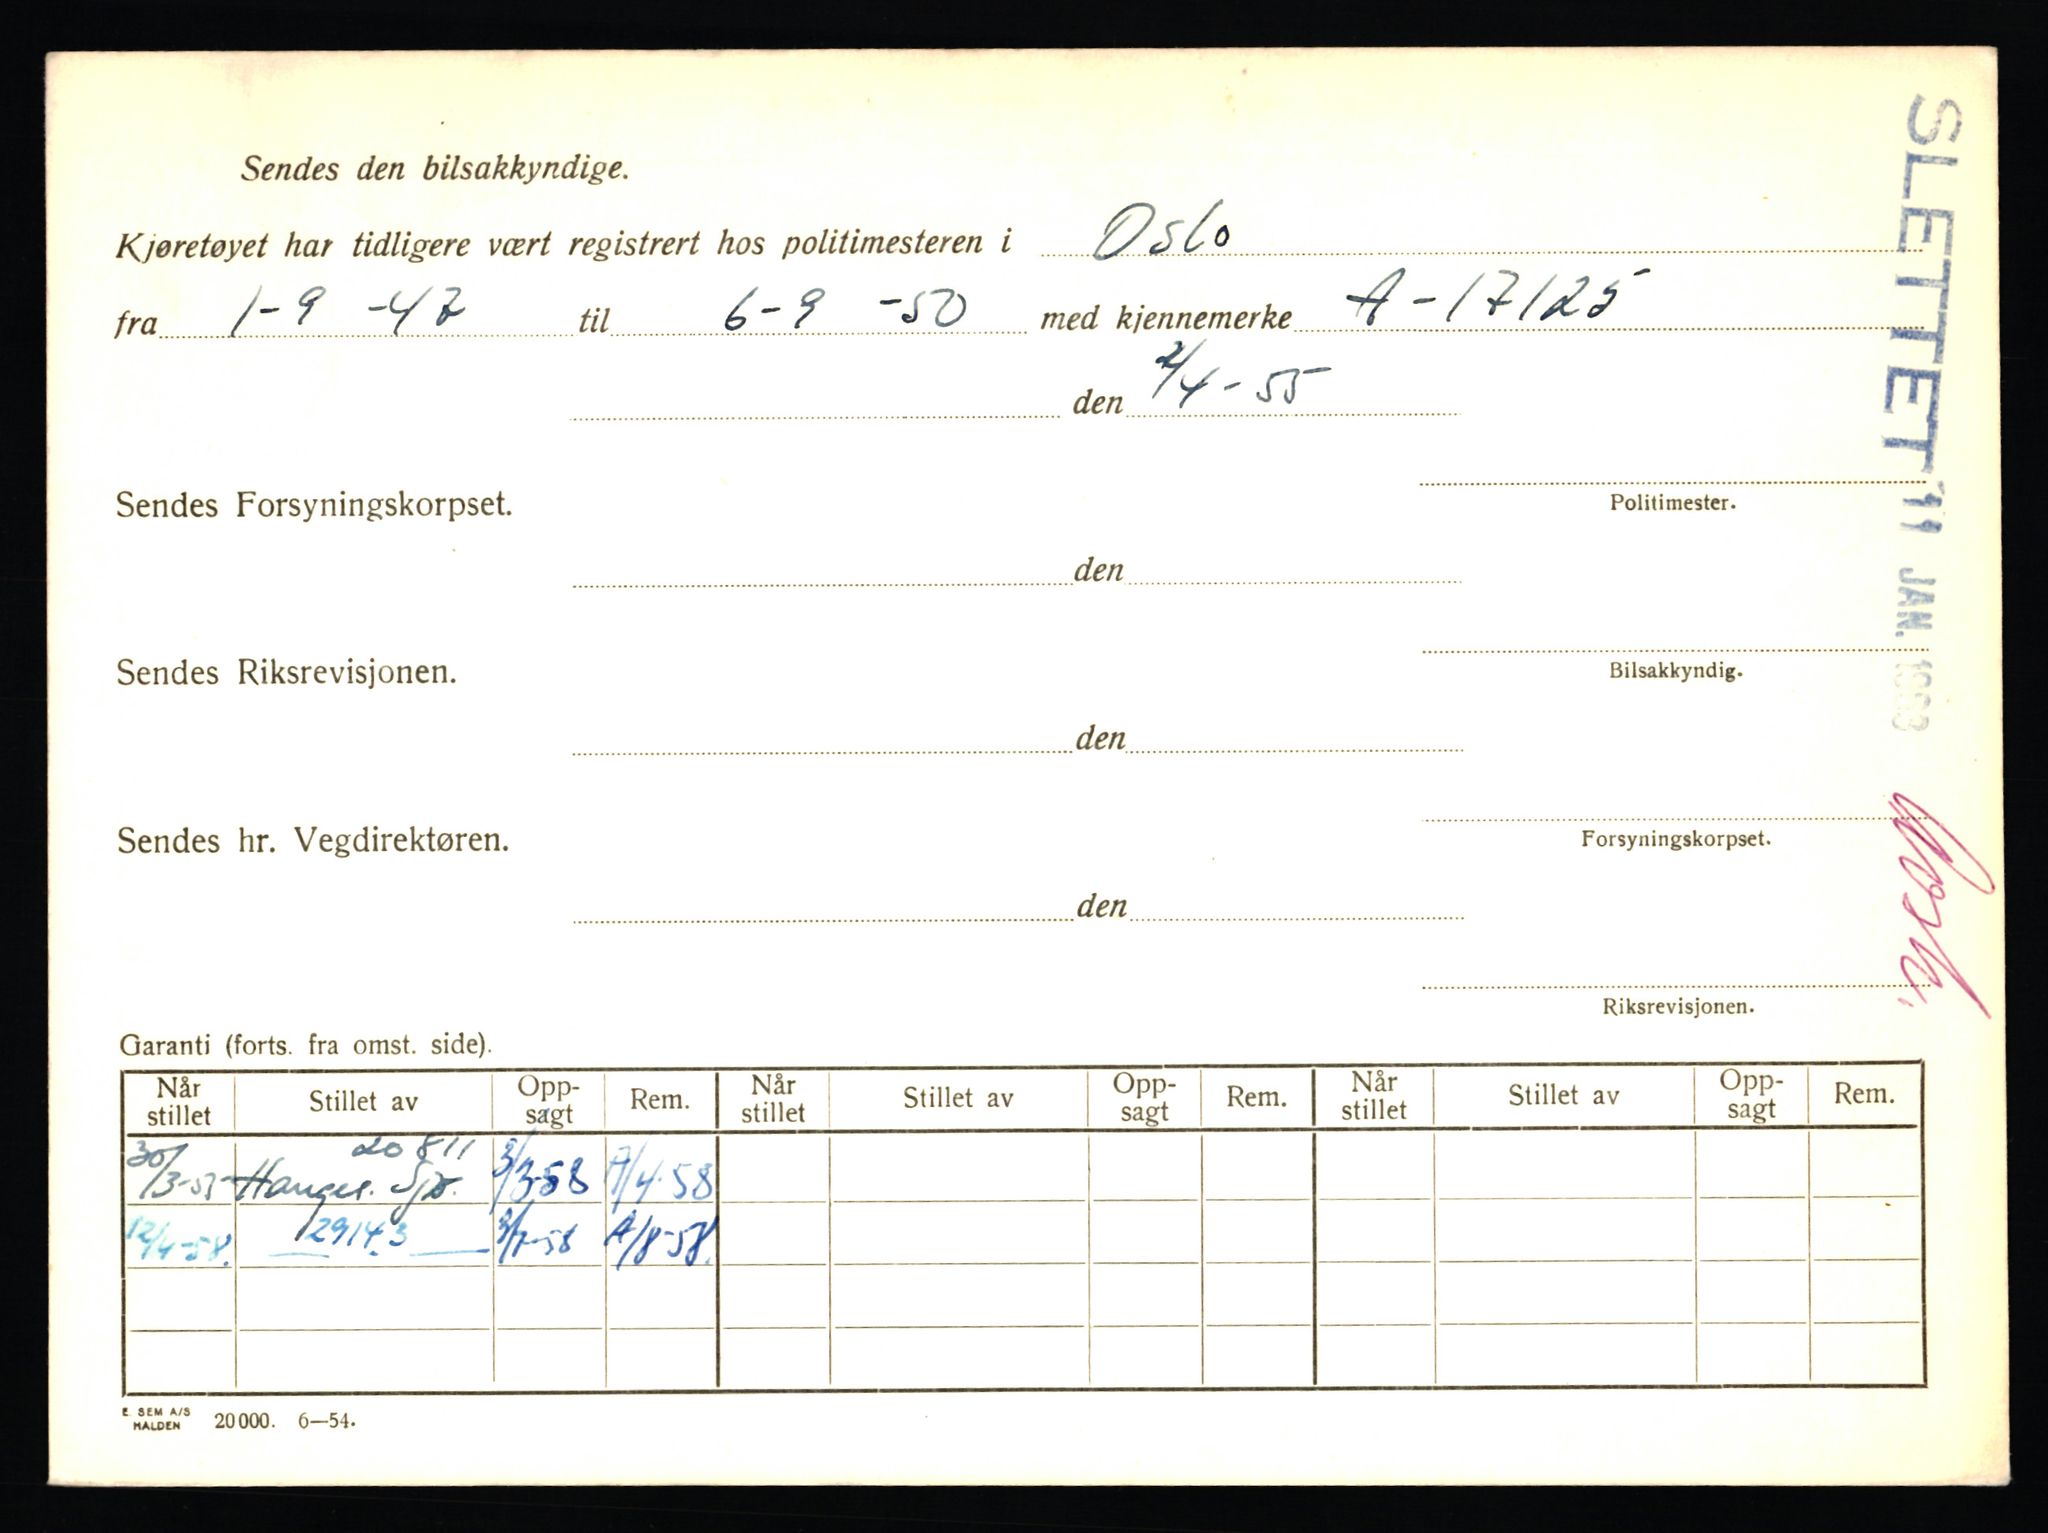 Sendes den bilsakkyndige.
Kjøretøyet har tidligere vært registrert hos politimesteren i Oslo
fra 1-9 -47 til 6-9 -50 med kjennemerke A-17125
den 2/4-55
Sendes Forsyningskorpset.
Politimester.
den
Sendes Riksrevisjonen.
Bilsakkyndig.
den
Sendes hr. Vegdirektøren.
Forsyningskorpset.
den
Riksrevisjonen.
SLETTET 11 JAN. 1963
Garanti (forts. fra omst. side).
Når stillet Stillet av Opp-sagt Rem. Når stillet Stillet av Opp-sagt Rem. Når stillet Stillet av Opp-sagt Rem.
20811
30/3-55 3/3-58 /4-58
12/4-58. 29143 3/7-58 /8-58.
E. SEM A/S
HALDEN 20000. 6—54.